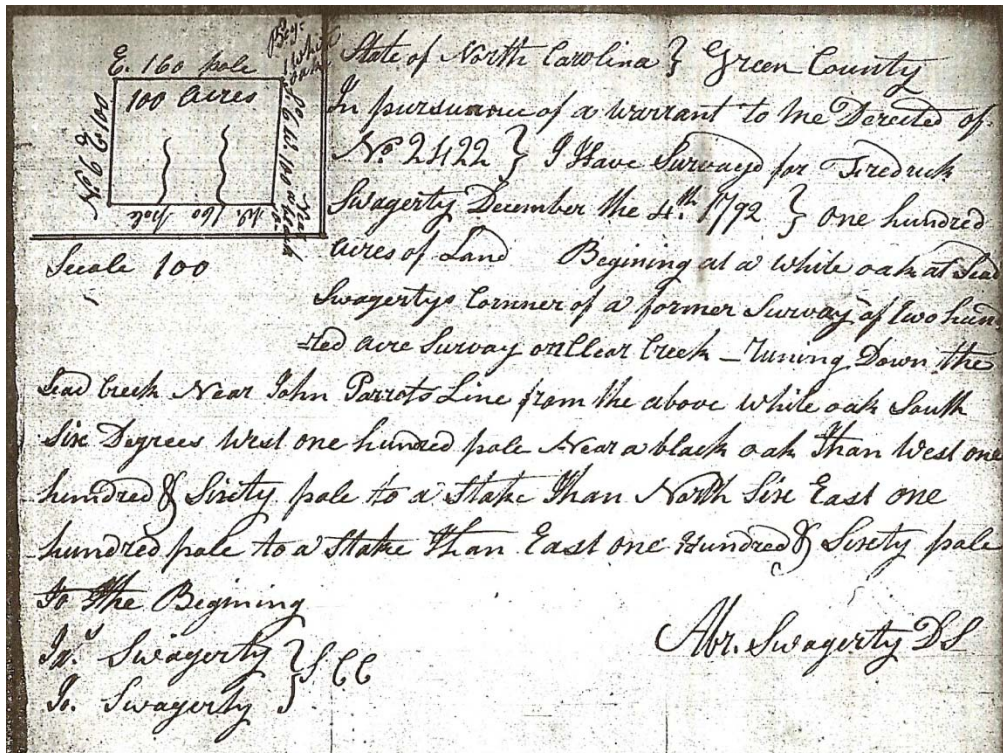 Beg:
1 White
oake
E. 160 pole
100 Acres
No. 6 E 100
So. 6 W. 100 to a black
W. 160 pole
Scale 100
State of North Carolina } Green County
In pursuance of a warrant to me Derected of
No. 2422 } I Have Survayd for Fredrick
Swagerty December the 4th. 1792 } one hundred
acres of Land Begining at a white oak at Sead
Swagertys Cornner of a former Survay of two hun
dred acre Survay on Clear Creek – Runing Down the
sead Creek Near John Parrots Line from the above white oak South
Six Degrees West one hundred pole Near a black oak Than West one
hundred & Sixty pole to a Stake Than North Six East one
hundred pole to a Stake Than East one Hundred & Sixty pole
to the Begining
Ja. Swagerty } S C C
Jo. Swagerty }
Abr. Swagerty DS